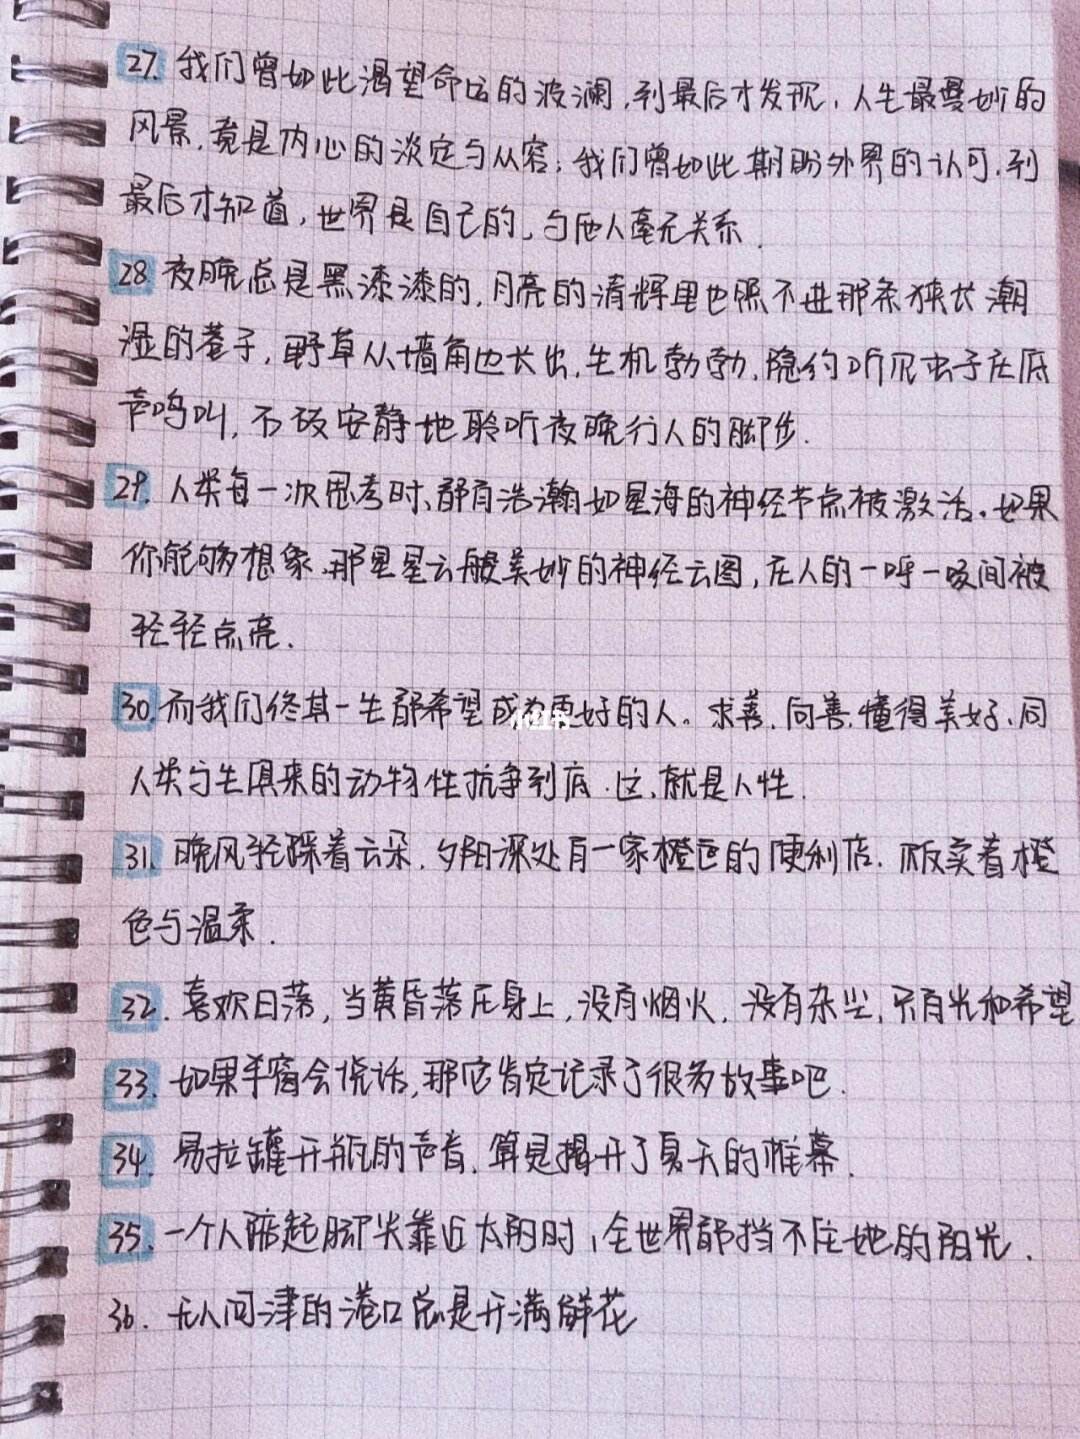 27. 我们曾如此渴望命运的波澜,到最后才发现,人生最曼妙的
风景,竟是内心的淡定与从容;我们曾如此期盼外界的认可,到
最后才知道,世界是自己的,与他人毫无关系.
28 夜晚总是黑漆漆的,月亮的清辉里也照不进那条狭长潮
湿的巷子,野草从墙角边长出,生机勃勃,隐约听见虫子在低
声鸣叫,不敌安静地聆听夜晚行人的脚步.
29. 人类每一次思考时、都有浩瀚如星海的神经节点被激活。如果
你能够想象,那星星云般美妙的神经云图,在人的一呼一吸间被
轻轻点亮.
30.而我们终其一生都希望成为更好的人。求善,向善,懂得美好、同
人类与生俱来的动物性抗争到底.这,就是人性.
小红书
31. 晚风轻踩着云朵,夕阳深处有一家橙色的便利店.贩卖着橙
色与温柔.
32. 喜欢日落,当黄昏落在身上,没有烟火,没有杂尘,只有光和希望
33. 如果手窗会说话,那它肯定记录了很多故事吧.
34. 易拉罐开瓶的声音,算是揭开了夏天的帷幕.
35. 一个人踮起脚尖靠近太阳时,全世界都挡不住她的阳光.
36. 无人问津的港口总是开满鲜花